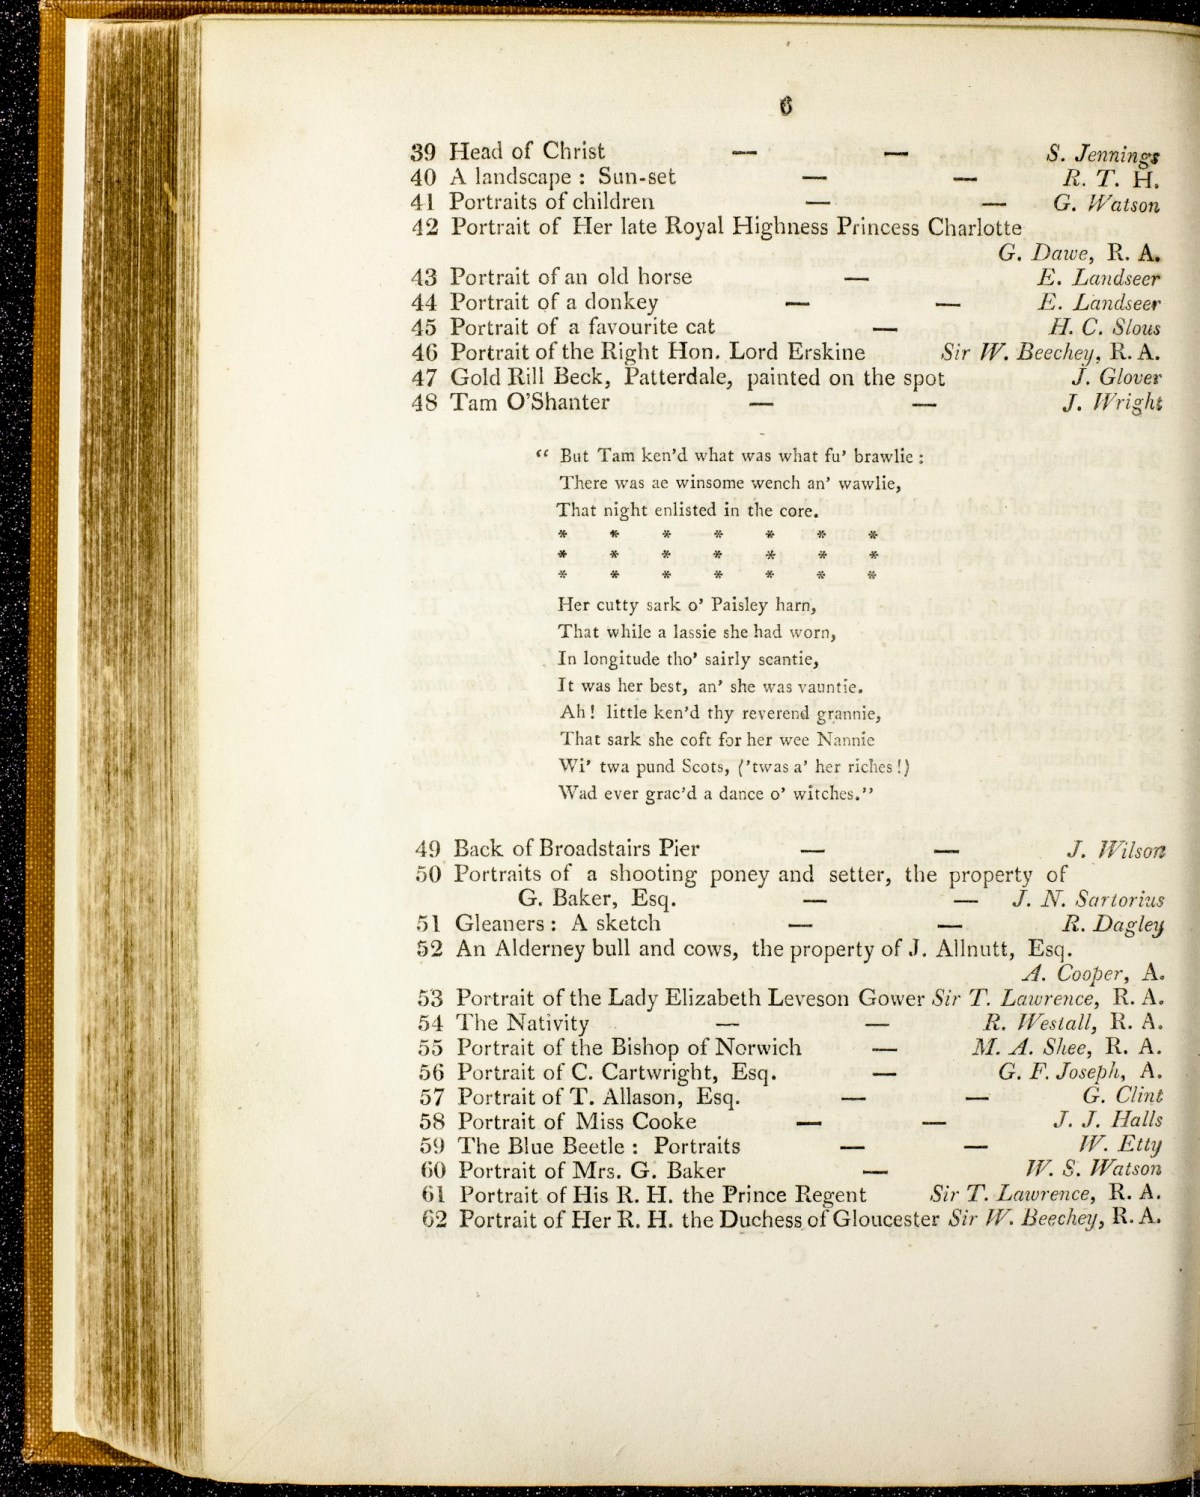 6
39 Head of Christ — — S. Jennings
40 A landscape : Sun-set — — R. T. H.
41 Portraits of children — — G. Watson
42 Portrait of Her late Royal Highness Princess Charlotte
G. Dawe, R. A.
43 Portrait of an old horse — E. Landseer
44 Portrait of a donkey — — E. Landseer
45 Portrait of a favourite cat — H. C. Slous
46 Portrait of the Right Hon. Lord Erskine Sir W. Beechey, R. A.
47 Gold Rill Beck, Patterdale, painted on the spot J. Glover
48 Tam O'Shanter — — J. Wright
“ But Tam ken'd what was what fu' brawlie :
There was ae winsome wench an' wawlie,
That night enlisted in the core.
* * * * * * *
* * * * * * *
* * * * * * *
Her cutty sark o' Paisley harn,
That while a lassie she had worn,
In longitude tho' sairly scantie,
It was her best, an' she was vauntie.
Ah ! little ken'd thy reverend grannie,
That sark she coft for her wee Nannie
Wi' twa pund Scots, ('twas a' her riches !)
Wad ever grac'd a dance o' witches.”
49 Back of Broadstairs Pier — — J. Wilson
50 Portraits of a shooting poney and setter, the property of
G. Baker, Esq. — — J. N. Sartorius
51 Gleaners : A sketch — — R. Dagley
52 An Alderney bull and cows, the property of J. Allnutt, Esq.
A. Cooper, A.
53 Portrait of the Lady Elizabeth Leveson Gower Sir T. Lawrence, R. A.
54 The Nativity — — R. Westall, R. A.
55 Portrait of the Bishop of Norwich — M. A. Shee, R. A.
56 Portrait of C. Cartwright, Esq. — G. F. Joseph, A.
57 Portrait of T. Allason, Esq. — — G. Clint
58 Portrait of Miss Cooke — — J. J. Halls
59 The Blue Beetle : Portraits — — W. Etty
60 Portrait of Mrs. G. Baker — W. S. Watson
61 Portrait of His R. H. the Prince Regent Sir T. Lawrence, R. A.
62 Portrait of Her R. H. the Duchess of Gloucester Sir W. Beechey, R. A.